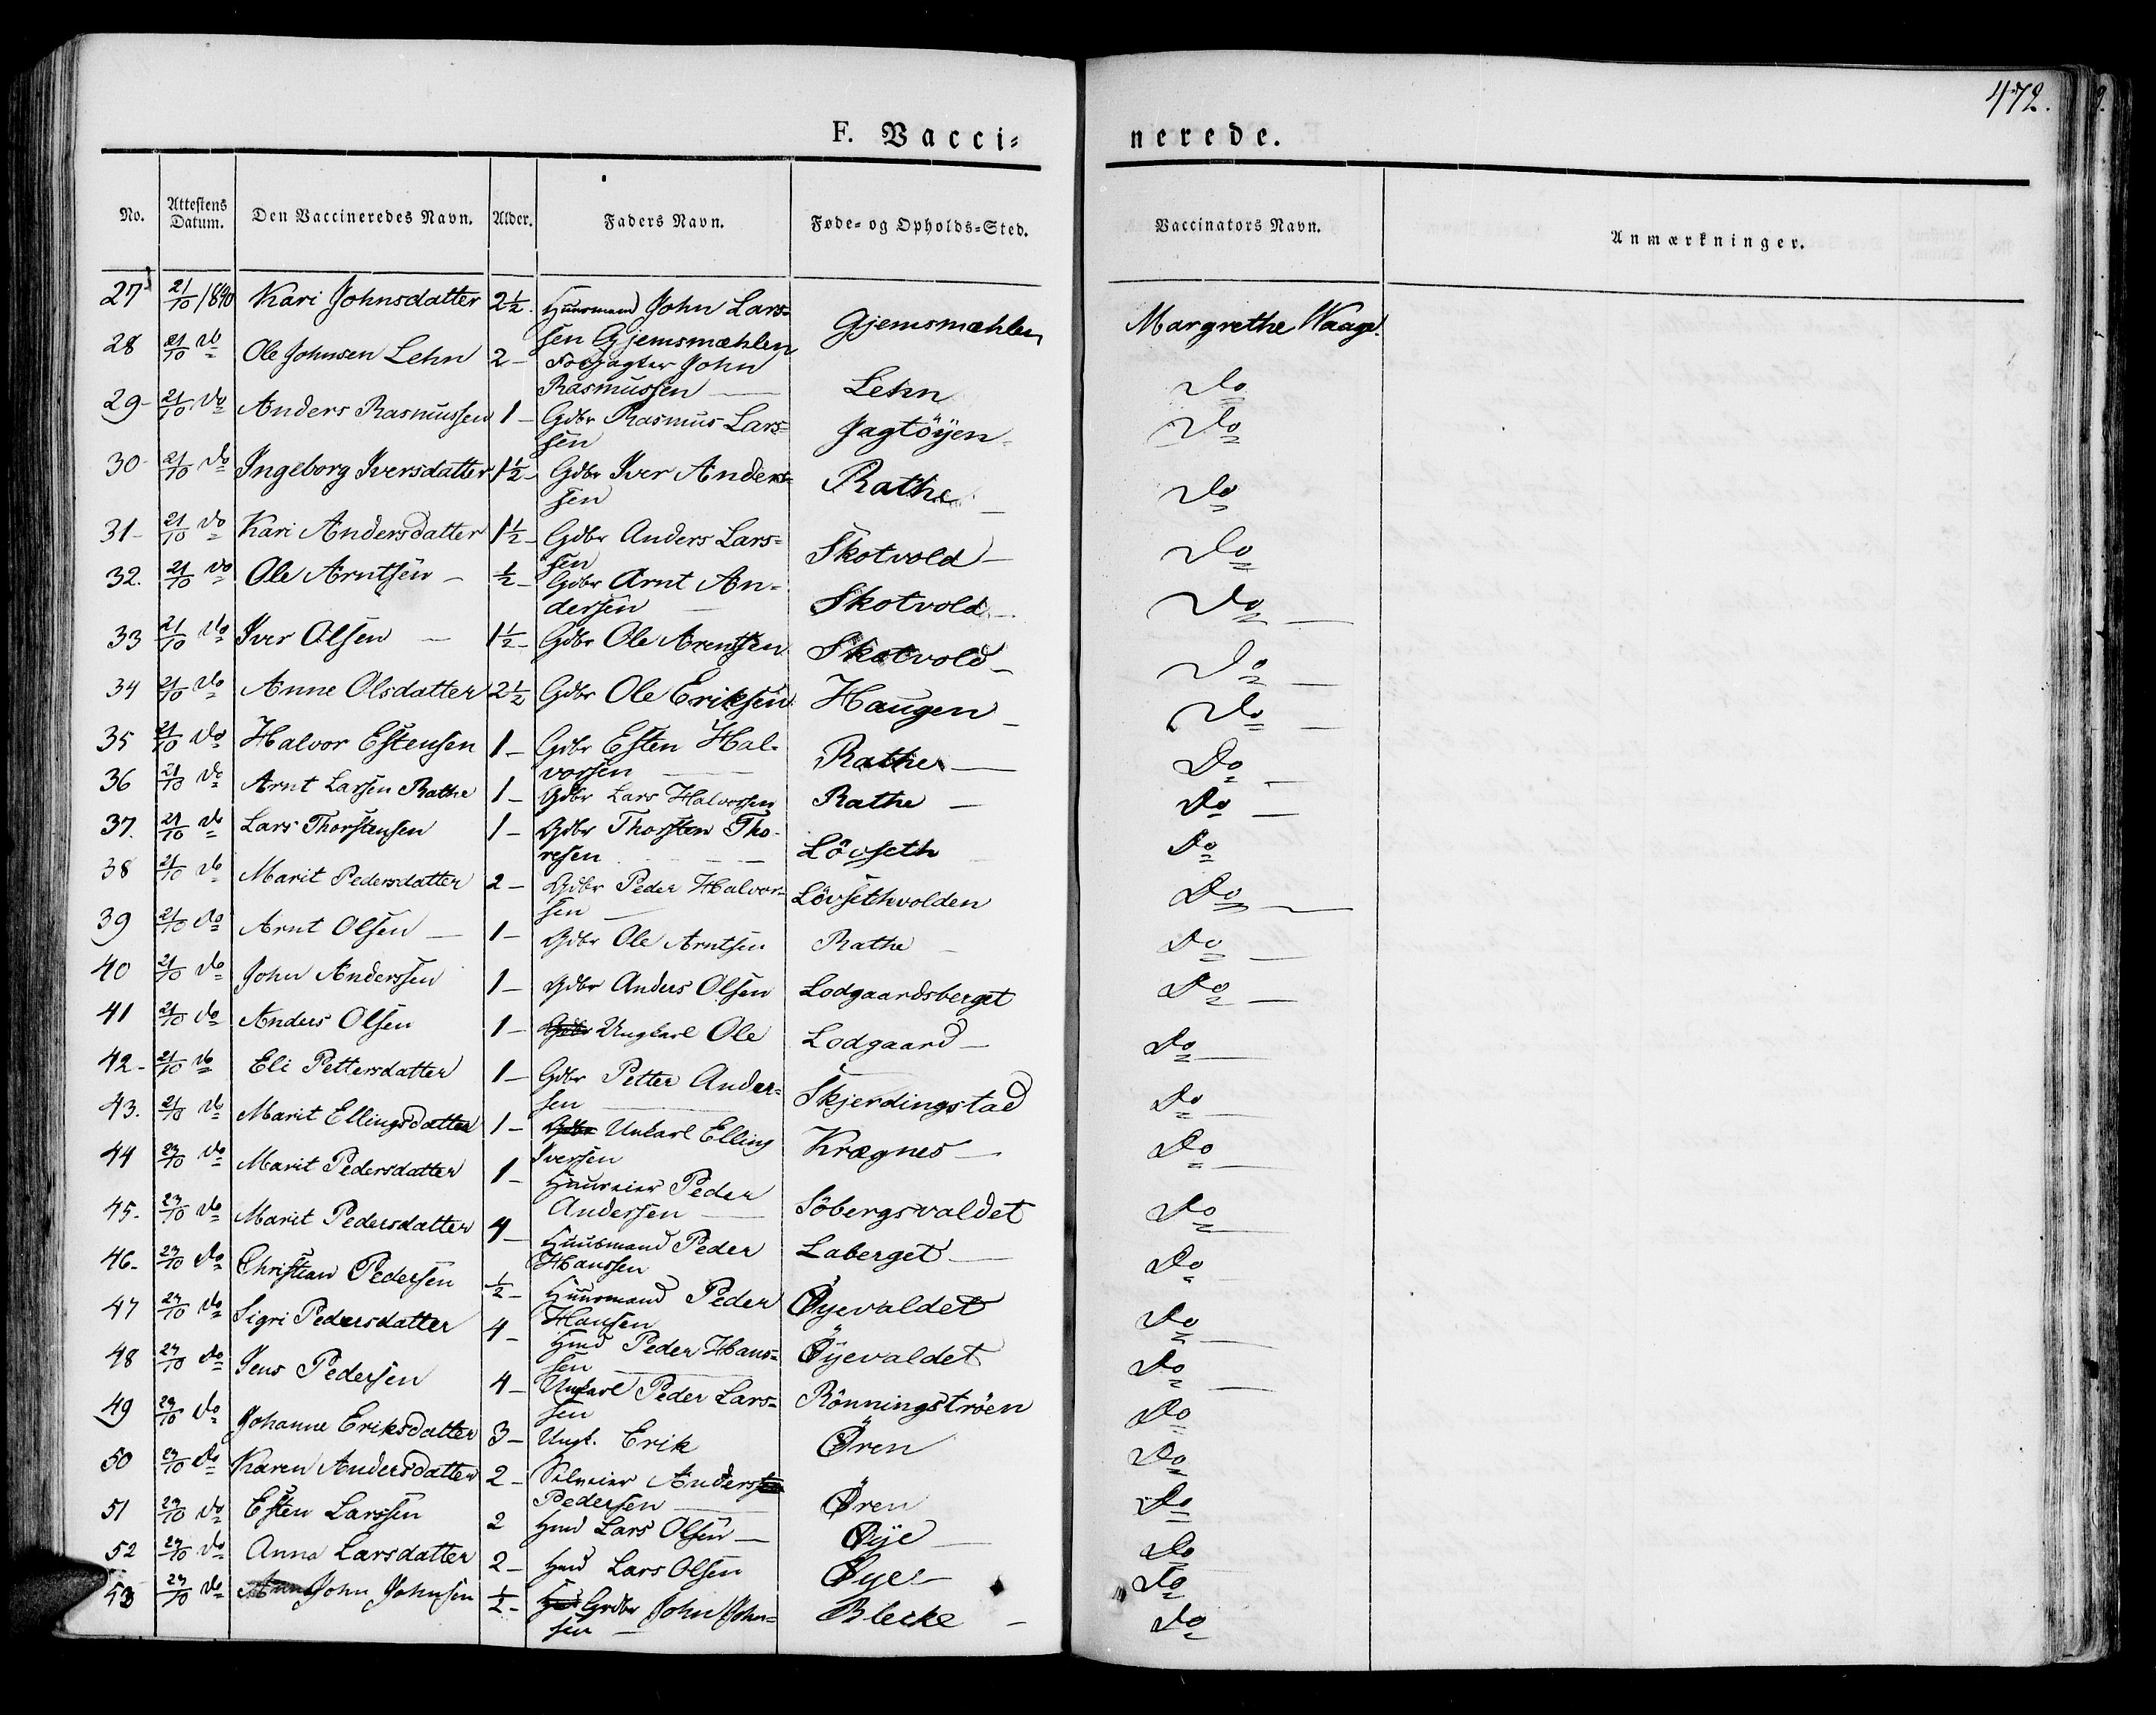 472.
F. Vacci=
nerede.
No.
Attestens Datum.
Den Vaccineredes Navn.
Alder.
Faders Navn.
Føde= og Opholds=Sted.
Vaccinators Navn.
Anmærkninger.
27 21/10 1840 Kari Johnsdatter 2½ Huusmand John Lars= Gjemsmæhlen Margrethe Waage.
sen Gjemsmæhlen
28 21/10 do Ole Johnsen Lehn 2 – John
Rasmussen — Lehn do
29 – 21/10 do Anders Rasmussen 1 – Gdbr Rasmus Lars= Jagtöyen do
sen
30 – 21/10 do Ingeborg Iversdatter 1½ – Gdbr Iver Anders= Rathe do
sen
31 – 21/10 do Kari Andersdatter 1½ – Gdbr Anders Lars= Skotvold – do
sen
32. 21/10 do Ole Arntsen – ½ – Gdbr Arnt An= Skotvold – do
dersen
33 21/10 do Iver Olsen – 1½ – Gdbr Ole Arentsen Skotvold – do
34 21/10 do Anne Olsdatter 2½ Gdbr Ole Eriksen Haugen – do
35 21/10 do Halvor Estensen 1 – Gdbr Esten Hal= Rathe — Do
vorsen
36 21/10 do Arnt Larsen Rathe 1 – Gdbr Lars Halvorsen Rathe – Do
37. 21/10 do Lars Thorstensen 1 – Gdbr Thorsten Tho= Lövseth Do
resen
38 21/10 do Marit Pedersdatter 2 – Gdbr Peder Halvor= Lövsethvolden Do
sen
39 21/10 do Arnt Olsen — 1 – Gdbr Ole Arntsen Rathe – Do
40 21/10 do John Anderssen 1 – Gdbr Anders Olsen Lodgaardsberget Do
41 21/10 do Anders Olsen 1 – Gdbr Ungkarl Ole Lodgaard – Do
42 – 21/10 do Eli Pettersdatter 1 – Gdbr Petter Ander= Skjerdingstad Do
sen
43. 21/10 do Marit Ellingsdatter 1 – Gdbr Unkarl Elling Krægnes – Do
Iversen
44 23/10 do Marit Pedersdatter 1 – Huuseier Peder
Andersen — Söbergsvaldet Do
45. 23/10 do Marit Pedersdatter 4 – Huusmand Peder Laberget – Do
Hanssen
46 – 23/10 do Christian Pedersen ½ – Huusmand Peder Öyevaldet Do
Hansen
47 23/10 do Sigri Pedersdatter 4 – Hmd Peder Hans= Öyevaldet Do
sen
48 23/10 do Jens Pedersen 4 – Unkarl Peder Lars= Rönningströen Do
sen
49 23/10 do Johanne Eriksdatter 3 – Ungk. Erik Ören Do
50 23/10 do Karen Andersdatter 2 – Selveier Anders
Pedersen — Ören Do
51 23/10 do Esten Larssen 2 Hmd Lars Olsen – Öye Do
52 23/10 do Anna Larsdatter 2 – Hmd Lars Olsen Öye – Do
53 23/10 do John Johnsen ½ – Grdbr John John= Blekke – Do
sen